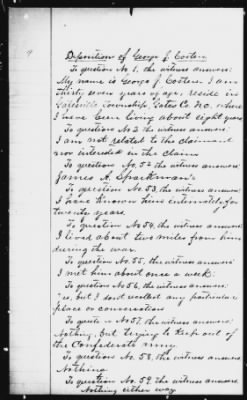 Deposition of George J. Costen
To question No. 1, the witness answers:
My name is George J. Costen. I am
thirty seven years of age, reside in
Township, Gates Co. N.C. where
I have been living about eight years
To question No. 2 the witness answers:
I am not related to the claimant
nor interested in the claim
To question No. 52 the witness answers:
James A.
To question No. 53, the witness answers:
I have known him intimately for
twenty years.
To question No. 54, the witness answers:
I lived about two miles from him
during the war.
To question No. 55, the witness answers:
I met him about once a week.
To question No. 56, the witness answers:
Yes, but I don't recollect any particular
place or conversation
To question No. 57, the witness answers:
Nothing, but trying to keep out of
the Confederate army
To question No. 58, the witness answers,
Nothing
To question No. 59 the witness answers:
Nothing either way